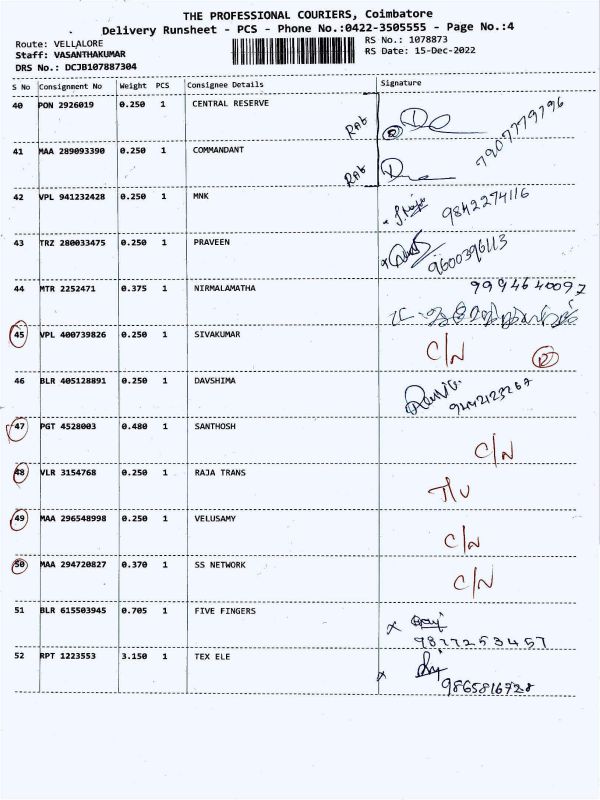 THE PROFESSIONAL COURIERS, Coimbatore
Delivery Runsheet - PCS - Phone No.:0422-3505555 - Page No.:4
Route: VELLALORE RS No.: 1078873
Staff: VASANTHAKUMAR RS Date: 15-Dec-2022
DRS No.: DCJB107887304
S No Consignment No Weight PCS Consignee Details Signature
40 PON 2926019 0.250 1 CENTRAL RESERVE
7907779796
41 MAA 289093390 0.250 1 COMMANDANT
42 VPL 941232428 0.250 1 MNK 9842274116
43 TRZ 280033475 0.250 1 PRAVEEN 9600396113
44 MTR 2252471 0.375 1 NIRMALAMATHA 9994640097
45 VPL 400739826 0.250 1 SIVAKUMAR C/N
46 BLR 405128891 0.250 1 DAVSHIMA 9442123267
47 PGT 4528003 0.480 1 SANTHOSH C/N
48 VLR 3154768 0.250 1 RAJA TRANS
49 MAA 296548998 0.250 1 VELUSAMY C/N
50 MAA 294720827 0.370 1 SS NETWORK C/N
51 BLR 615503945 0.705 1 FIVE FINGERS
9877253457
52 RPT 1223553 3.150 1 TEX ELE
9865816728